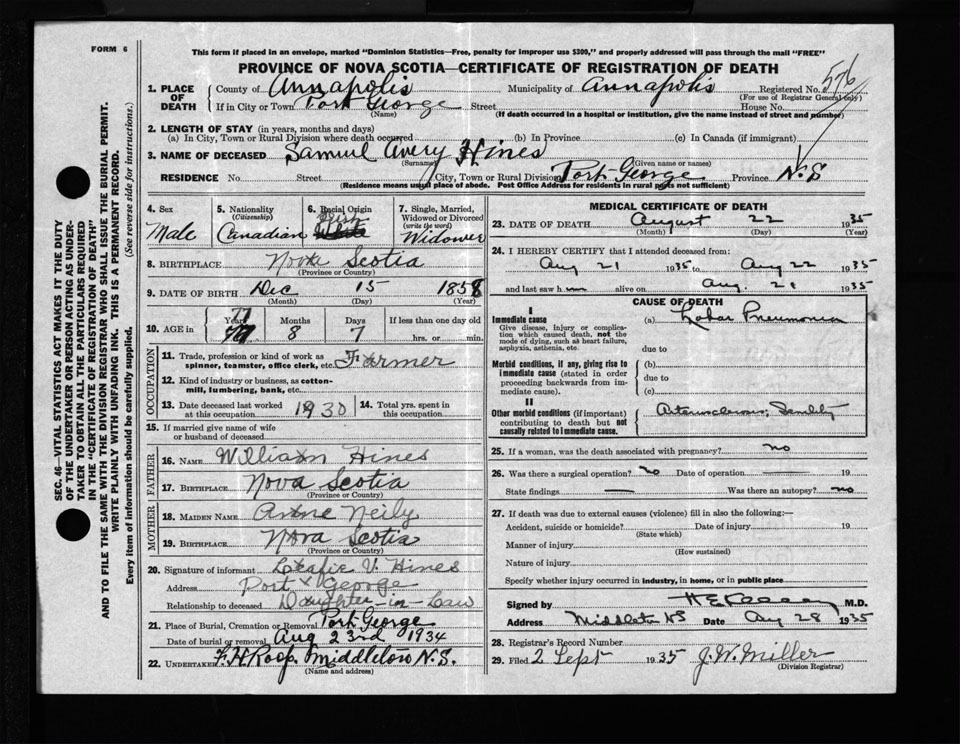 FORM 6
This form if placed in an envelope, marked "Dominion Statistics—Free, penalty for improper use $300," and properly addressed will pass through the mail "FREE"
PROVINCE OF NOVA SCOTIA—CERTIFICATE OF REGISTRATION OF DEATH
576
1. PLACE OF DEATH County of Annapolis Municipality of Annapolis Registered No.
(For use of Registrar General only)
If in City or Town Port George Street House No.
(Name) (If death occurred in a hospital or institution, give the name instead of street and number)
2. LENGTH OF STAY (in years, months and days)
(a) In City, Town or Rural Division where death occurred (b) In Province (c) In Canada (if immigrant)
3. NAME OF DECEASED Samuel Avery Hines
(Surname) (Given name or names)
RESIDENCE No. Street City, Town or Rural Division Port George Province N.S
(Residence means usual place of abode. Post Office Address for residents in rural parts not sufficient)
4. Sex Male
5. Nationality (Citizenship) Canadian
6. Racial Origin Irish White
7. Single, Married, Widowed or Divorced (write the word) Widower
8. BIRTHPLACE Nova Scotia
(Province or Country)
9. DATE OF BIRTH Dec 15 1858
(Month) (Day) (Year)
10. AGE in Years 77 Months 8 Days 7 If less than one day old hrs. or min.
OCCUPATION
11. Trade, profession or kind of work as spinner, teamster, office clerk, etc. Farmer
12. Kind of industry or business, as cotton-mill, lumbering, bank, etc.
13. Date deceased last worked at this occupation 1930 14. Total yrs. spent in this occupation
15. If married give name of wife or husband of deceased
FATHER
16. NAME William Hines
17. BIRTHPLACE Nova Scotia
(Province or Country)
MOTHER
18. MAIDEN NAME Anne Neily
19. BIRTHPLACE Nova Scotia
(Province or Country)
20. Signature of informant V. Hines
Address Port George
Relationship to deceased Daughter-in-Law
21. Place of Burial, Cremation or Removal Port George
Date of burial or removal Aug 23rd 1934
22. UNDERTAKER F. H Roop Middleton N.S.
(Name and address)
MEDICAL CERTIFICATE OF DEATH
23. DATE OF DEATH August 22 1935
(Month) (Day) (Year)
24. I HEREBY CERTIFY that I attended deceased from:
Aug 21 1935 to Aug 22 1935
and last saw h im alive on Aug. 21 1935
CAUSE OF DEATH
I
Immediate cause (a) Lobar Pneumonia
Give disease, injury or complication which caused death, not the mode of dying, such as heart failure, asphyxia, asthenia, etc.
due to
Morbid conditions, if any, giving rise to immediate cause (stated in order proceeding backwards from immediate cause).
(b)
due to
(c)
II
Other morbid conditions (if important) contributing to death but not causally related to immediate cause. Arteriosclerosis; Senility
25. If a woman, was the death associated with pregnancy? no
26. Was there a surgical operation? no Date of operation 19
State findings — Was there an autopsy? no
27. If death was due to external causes (violence) fill in also the following:—
Accident, suicide or homicide? Date of injury 19
(State which)
Manner of injury
(How sustained)
Nature of injury
Specify whether injury occurred in industry, in home, or in public place
Signed by M.D.
Address Middleton NS Date Aug 28 1935
28. Registrar's Record Number
29. Filed 2 Sept 1935 J. W. Miller
(Division Registrar)
SEC. 46—VITAL STATISTICS ACT MAKES IT THE DUTY
OF THE UNDERTAKER OR PERSON ACTING AS UNDER-
TAKER TO OBTAIN ALL THE PARTICULARS REQUIRED
IN THE "CERTIFICATE OF REGISTRATION OF DEATH"
AND TO FILE THE SAME WITH THE DIVISION REGISTRAR WHO SHALL ISSUE THE BURIAL PERMIT.
WRITE PLAINLY WITH UNFADING INK. THIS IS A PERMANENT RECORD.
Every item of information should be carefully supplied. (See reverse side for instructions.)